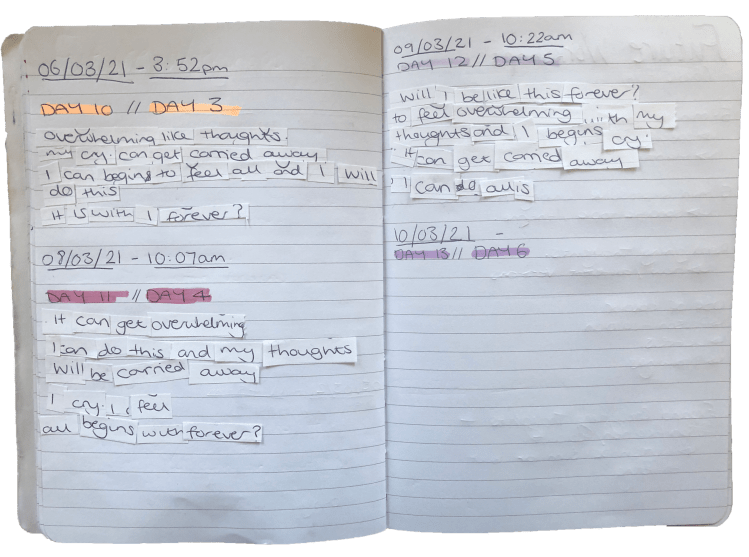 06/03/21 - 3:52pm
DAY 10 // DAY 3
overwhelming like thoughts
my cry. can get carried away
I can begins to feel all and I will
do this
it is with I forever?
08/03/21 - 10:07am
DAY 11 // DAY 4
it can get overwhelming
I can do this and my thoughts
will be carried away
I cry. I, feel
all begins with forever?
09/03/21 - 10:22am
DAY 12 // DAY 5
will I be like this forever?
to feel overwhelming with my
thoughts and I begins cry.
it can get carried away
I can do all is
10/03/21 -
DAY 13 // DAY 6